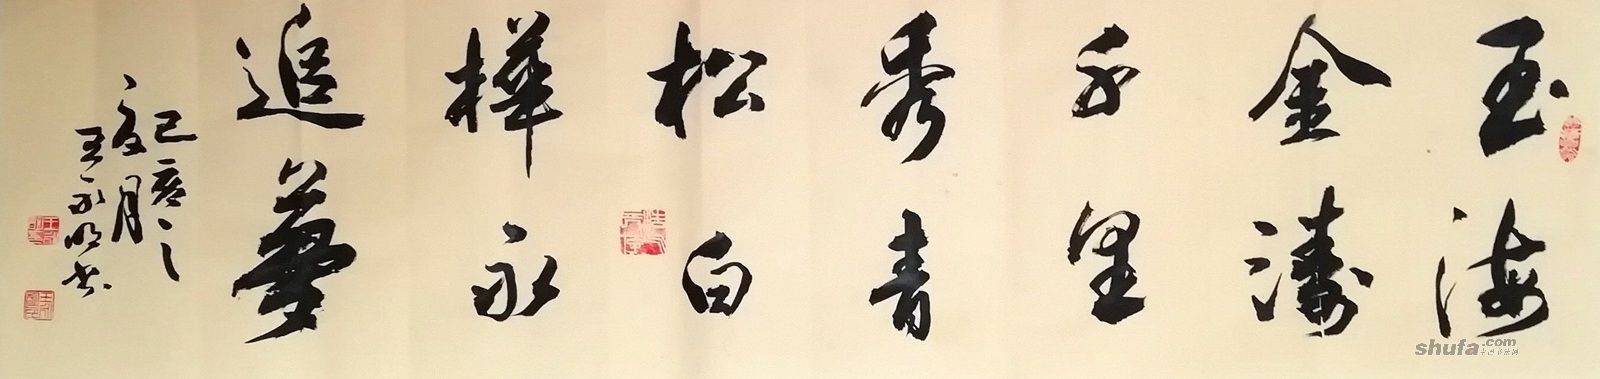 玉海
金濤
千里
秀青
松白
樺永
追夢
己亥之
夏月
王永明書
shufa.com